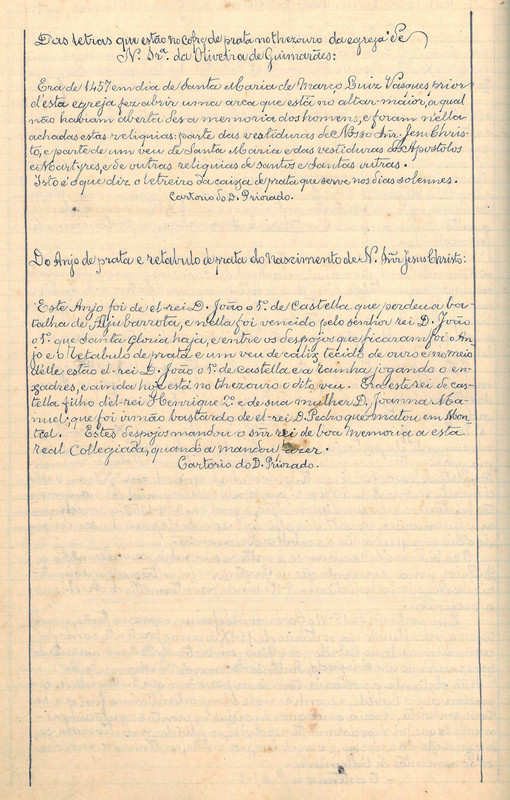 Das letras que estão no cofre de prata no thezouro da egreja de
N. Srª. da Oliveira de Guimarães:
Era de 1457 em dia de Santa Maria de Março Luiz Vasques prior
d'esta egreja fez abrir uma arca que está no altar-maior, a qual
não haviam aberta des a memoria dos homens, e foram n'ella
achadas estas reliquias: parte das vestiduras de Nosso Snr. Jesu Chris-
to, e parte de um veu de Santa Maria e das vestiduras dos Apostolos
e Martyres, e de outras reliquias de santos e santas outras.
Isto é o que diz o letreiro da caixa de prata que serve nos dias solennes.
Cartorio do D. Priorado.
Do Anjo de prata e retabulo de prata do nascimento de N. Snr Jesus Christo:
Este Anjo foi de el-rei D. João o 1º. de Castella que perdeu a ba-
talha de Aljubarrota, e n'ella foi vencido pelo senhor rei D. João
o 1º. que Santa Gloria haja, e entre os despojos que ficaram foi o An-
jo e o Retabulo de prata e um veu de caliz tecido de ouro e no meio
d'elle estão el-rei D. João o 1º. de Castella e a rainha jogando o en-
xadres, e ainda hoje está no thezouro o dito veu. Era este rei de cas-
tella filho del-rei Henrique 2º. e de sua mulher D. Joanna Ma-
nuel, que foi irmão bastardo de el-rei D. Pedro que matou em Mon-
tel. Estes despojos mandou o snr rei de boa memoria a esta
real Collegiada, quando a mandou fazer.
Cartorio do D. Priorado.